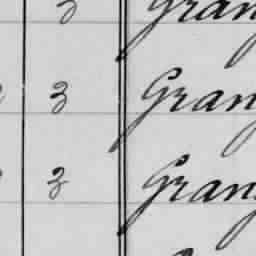 3 Gran
3 Gran
3 Gran